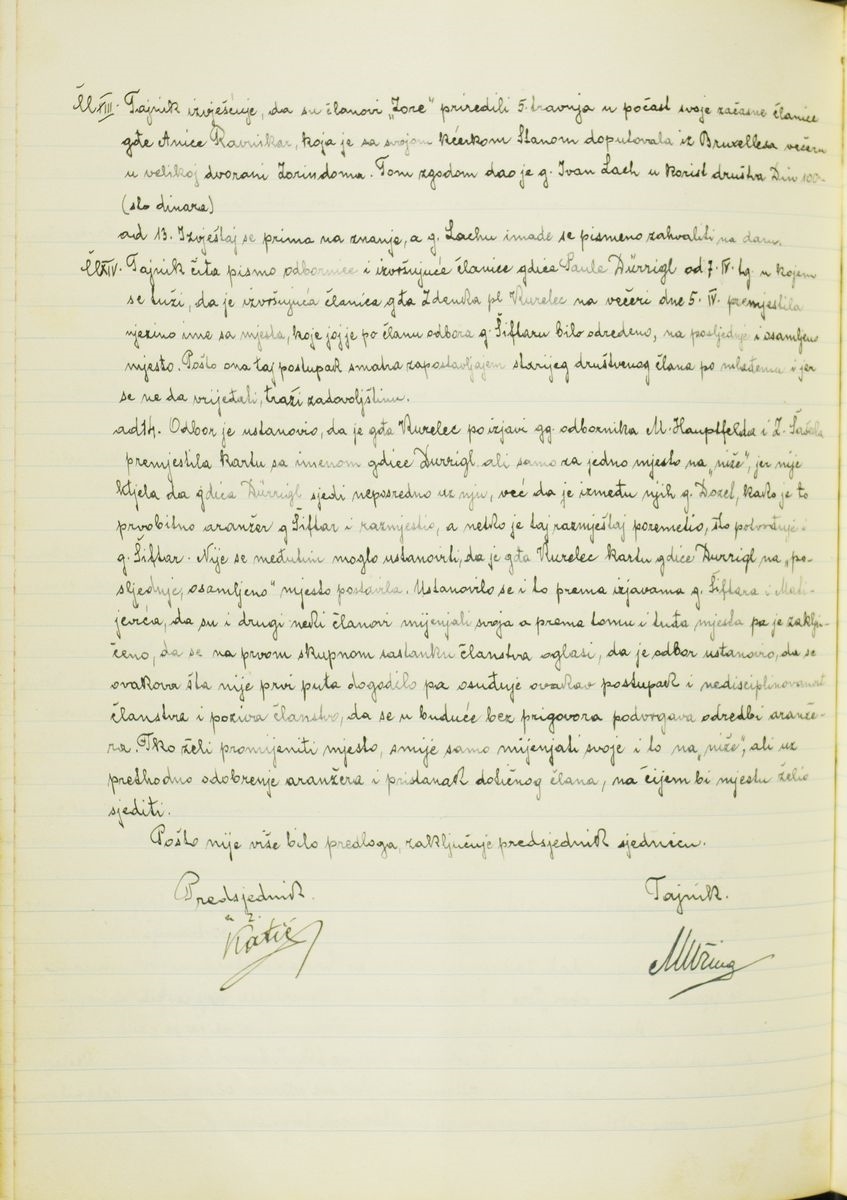 Čl. XIII. Tajnik izvješćuje, da su članovi „Zore" priredili 5. travnja u počast svoje začasne članice
gđe Anice Ravnikar, koja je sa svojom kćerkom Stanom doputovala iz Bruxellesa večeru
u velikoj dvorani Zorindoma. Tom zgodom dao je g. Ivan Lach u korist društva Din 100-
(sto dinara)
ad 13. Izvještaj se prima na znanje, a g. Lachu imade se pismeno zahvaliti na daru.
Čl. XIV. Tajnik čita pismo odbornice i izvršujuće članice gdice Paule Dürrigl od 7. IV. tg. u kojem
se tuži, da je izvršujuća članica gđa Zdenka pl. Kurelec na večeri dne 5. IV. premjestila
njezino ime sa mjesta, koje joj je po članu odbora g. Šiftaru bilo određeno, na posljednje i osamljeno
mjesto. Pošto ona taj postupak smatra zapostavljajem starijeg društvenog člana po mlađemu i jer
se ne da vrijeđati, traži zadovoljštinu.
ad 14. Odbor je ustanovio, da je gđa Kurelec po izjavi gg. odbornika M. Hauptfelda i Z.
premjestila kartu sa imenom gdice Dürrigl ali samo za jedno mjesto na „niže", jer nije
htjela da gdica Dürrigl sjedi neposredno uz nju, već da je između njih g. Dozel, kako je to
prvobitno aranžer g Šiftar i razmjestio, a netko je taj razmještaj poremetio, što potvrđuje i
g. Šiftar. Nije se međutim moglo ustanoviti, da je gđa Kurelec kartu gdice Dürrigl na „po-
sljednje, osamljeno" mjesto postavila. Ustanovilo se i to prema izjavama g. Šiftara i Mati-
jevića, da su i drugi neki članovi mijenjali svoja a prema tomu i tuđa mjesta pa je zaklju-
čeno, da se na prvom skupnom sastanku članstva oglasi, da je odbor ustanovio, da se
ovakova šta nije prvi puta dogodilo pa osuđuje ovakav postupak i nediscipliniovanost
članstva i poziva članstvo, da se u buduće bez prigovora podvrgava odredbi aranže-
ra. Tko želi promijeniti mjesto, smije samo mijenjati svoje i to na „niže", ali uz
prethodno odobrenje aranžera i pristanak dotičnog člana, na čijem bi mjestu želio
sjediti.
Pošto nije više bilo predloga, zaključuje predsjednik sjednicu.
Predsjednik. Tajnik.
a. z.
Katić